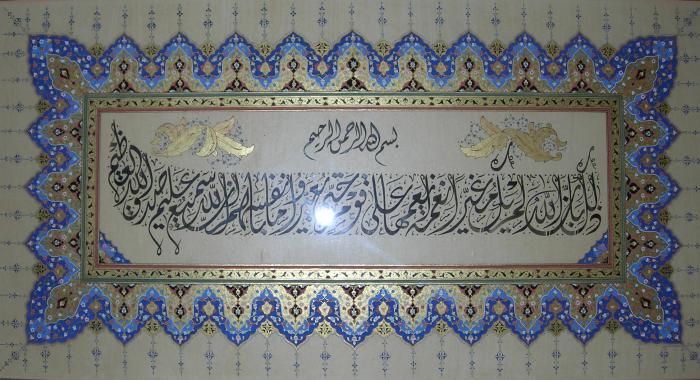 بسم الله الرحمن الرحیم
ذلك بأن الله لم يك مغيرا نعمة أنعمها على قوم حتى يغيروا ما بأنفسهم وأن الله سميع عليم صدق الله العظيم